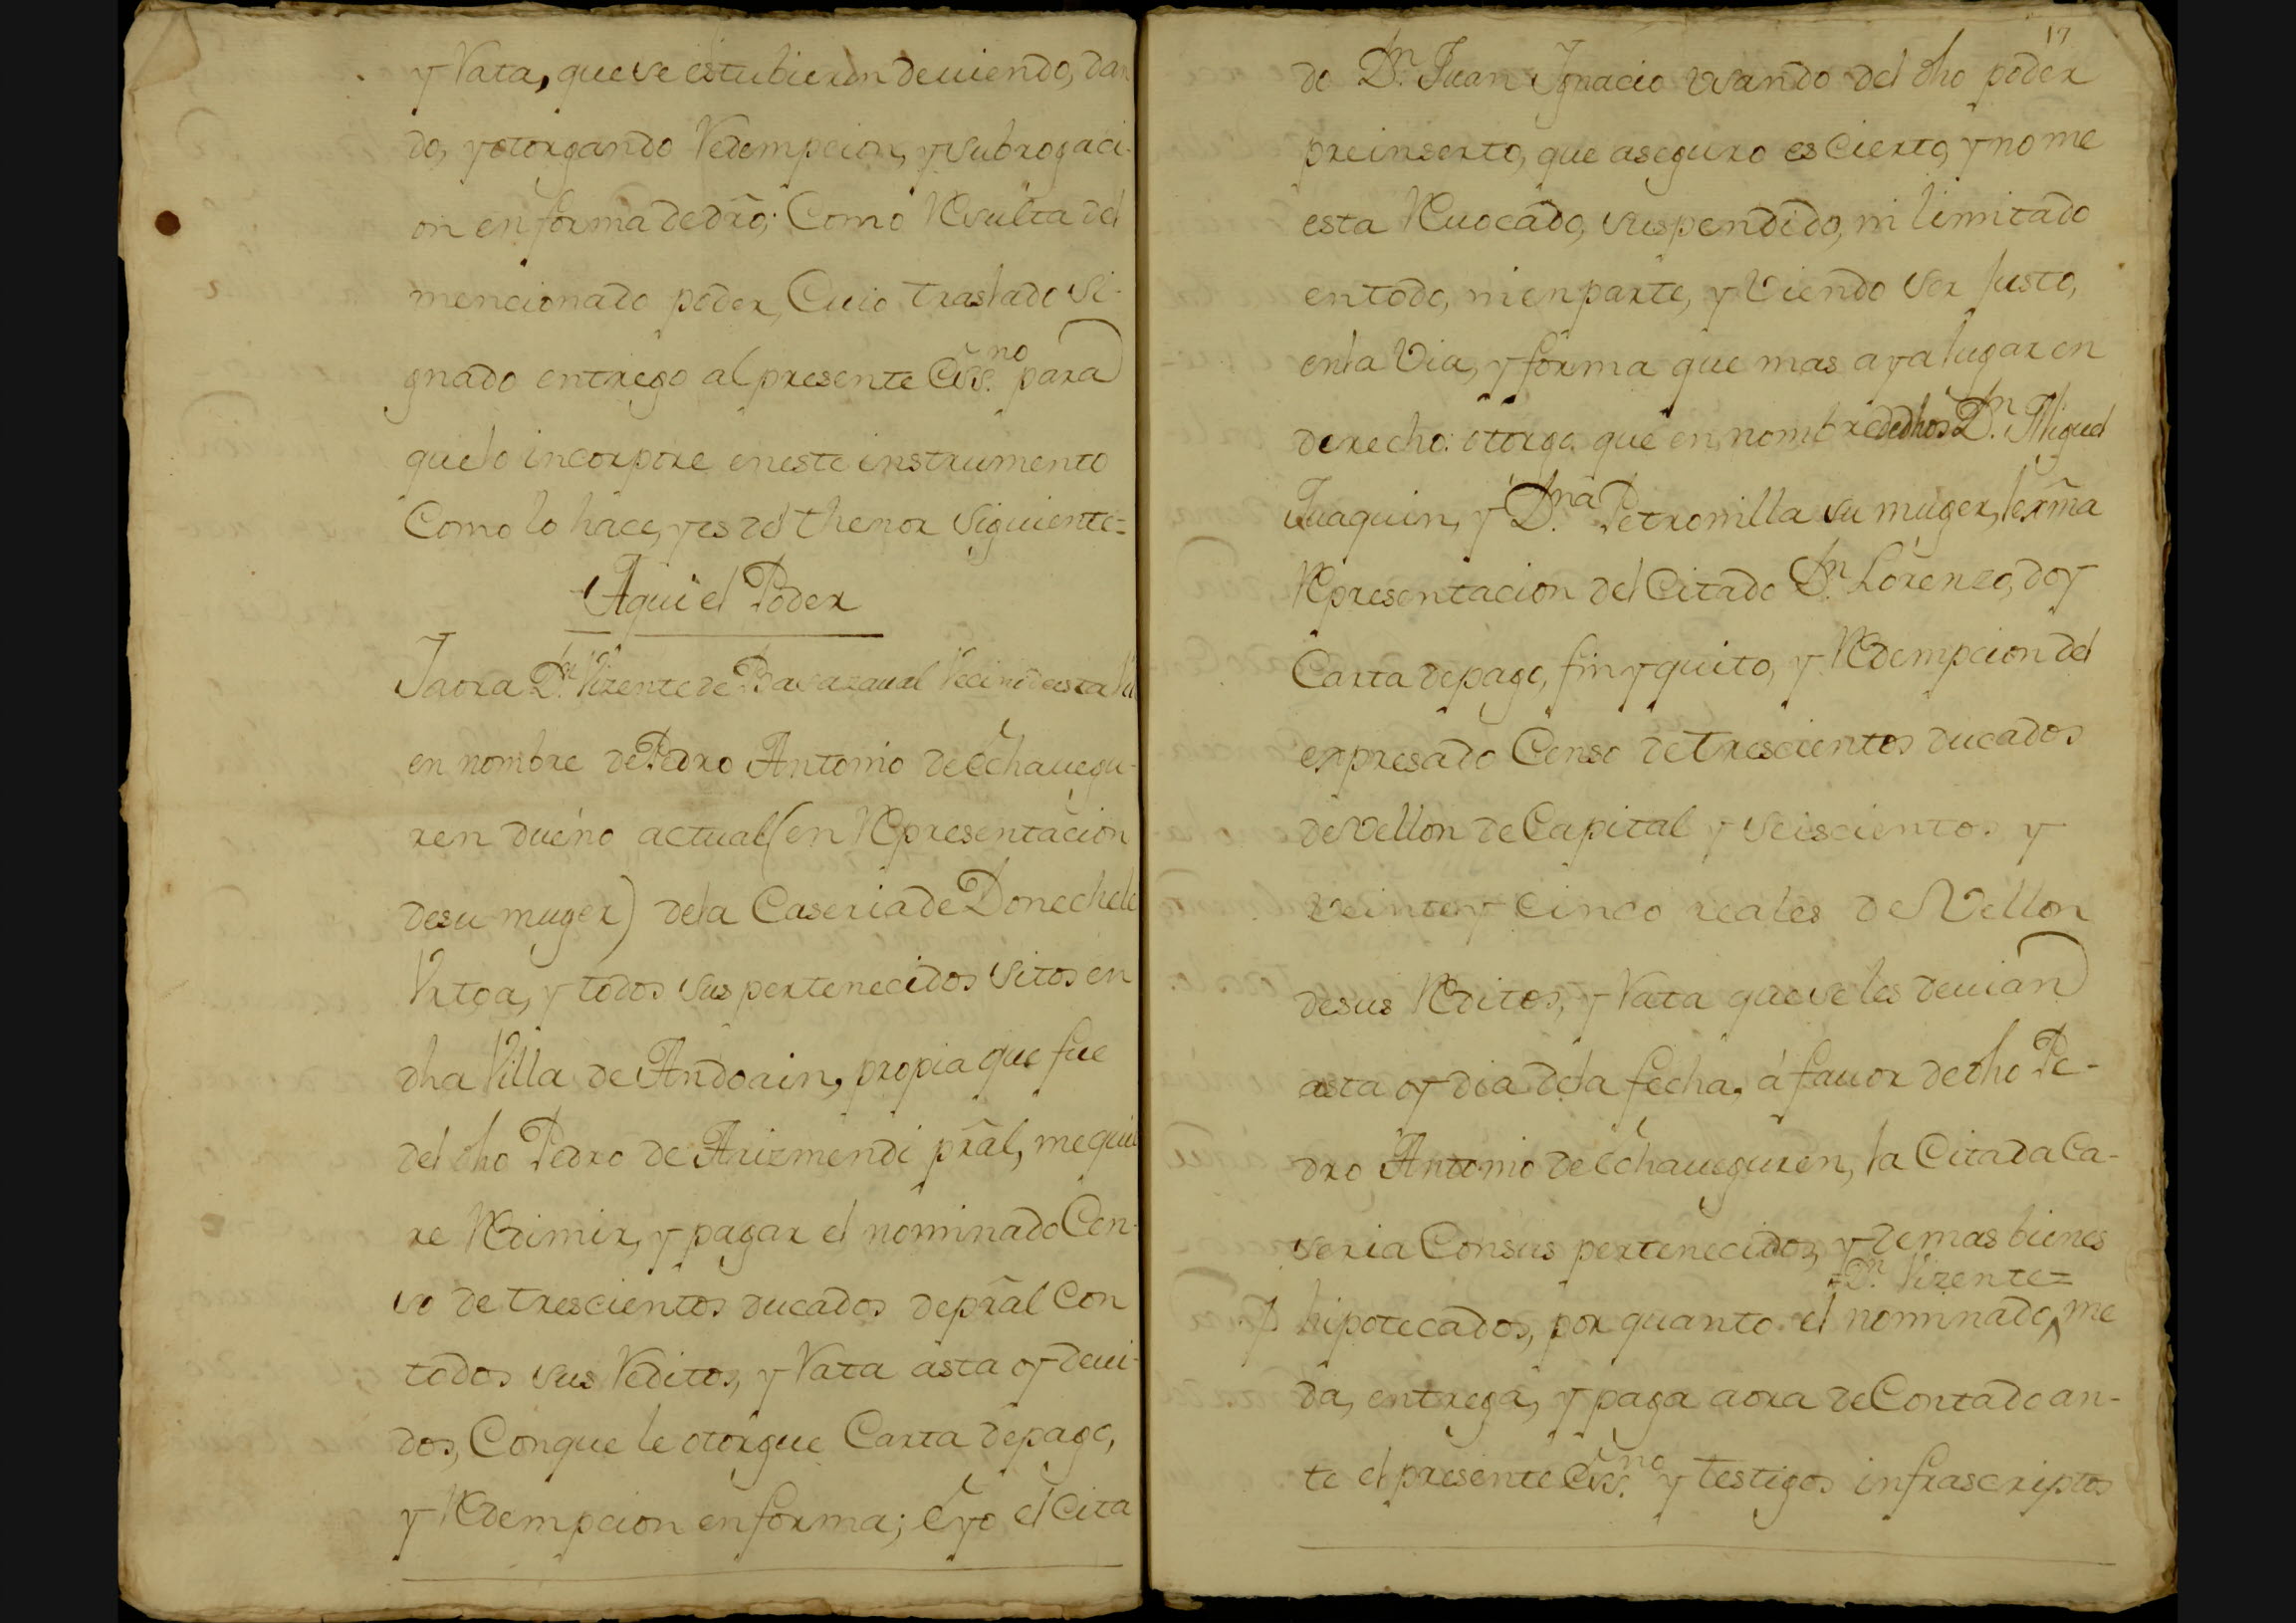 y Rata, que se estubieron deuiendo, dan
do, y otorgando Redempcion, y subrogaci-
on en forma de dro; Como Resulta del
mencionado poder, Cuio traslado si-
gnado entrego al presente Ess.no para
que lo incorpore en este instrumento
Como lo hace, y es del thenor siguiente=
Aqui el Poder
Y aora Dn Vizente de Vecino desta Va
en nombre de Pedro Antonio de Echauegu-
ren dueño actual (en Representacion
de su muger) de la Caseria de Donechele
Vrtoa, y todos sus pertenecidos sitos en
dha Villa de Andoain, propia que fue
del dho Pedro de Arizmendi pral, me quie
re Redimir, y pagar el nominado Cen-
so de trescientos ducados de pral con
todos sus Reditos, y Rata asta oy deui-
dos, Con que le otorgue Carta de pago,
y Redempcion en forma; E yo el Cita
17
do Dn. Juan Ignacio usando del dho poder
preinserto, que aseguro es Cierto, y no me
esta Reuocado, suspendido, ni limitado
en todo, ni en parte, y Viendo ser Justo,
en la Via, y forma que mas aya lugar en
derecho: otorgo que en nombre de dhos Dn. Miguel
Juaquin, y Dna. Petronilla su muger, lexma
Representacion del Citado Dn. Lorenzo, doy
Carta de pago, fin y quito, y Redempcion del
expresado Censo de trescientos ducados
de Vellon de Capital y seiscientos y
veinte y cinco reales de Vellon
de sus Reditos, y Rata que se les deuian
asta oy dia de la fecha, á fauor de dho Pe-
dro Antonio de Echaueguren, la Citada Ca-
seria Con sus pertenecidos, y demas bienes
=Dn. Vizente=
hipotecados, por quanto el nominado, me
da, entrega, y paga aora de Contado an-
te el presente Ess.no y testigos infrascriptos